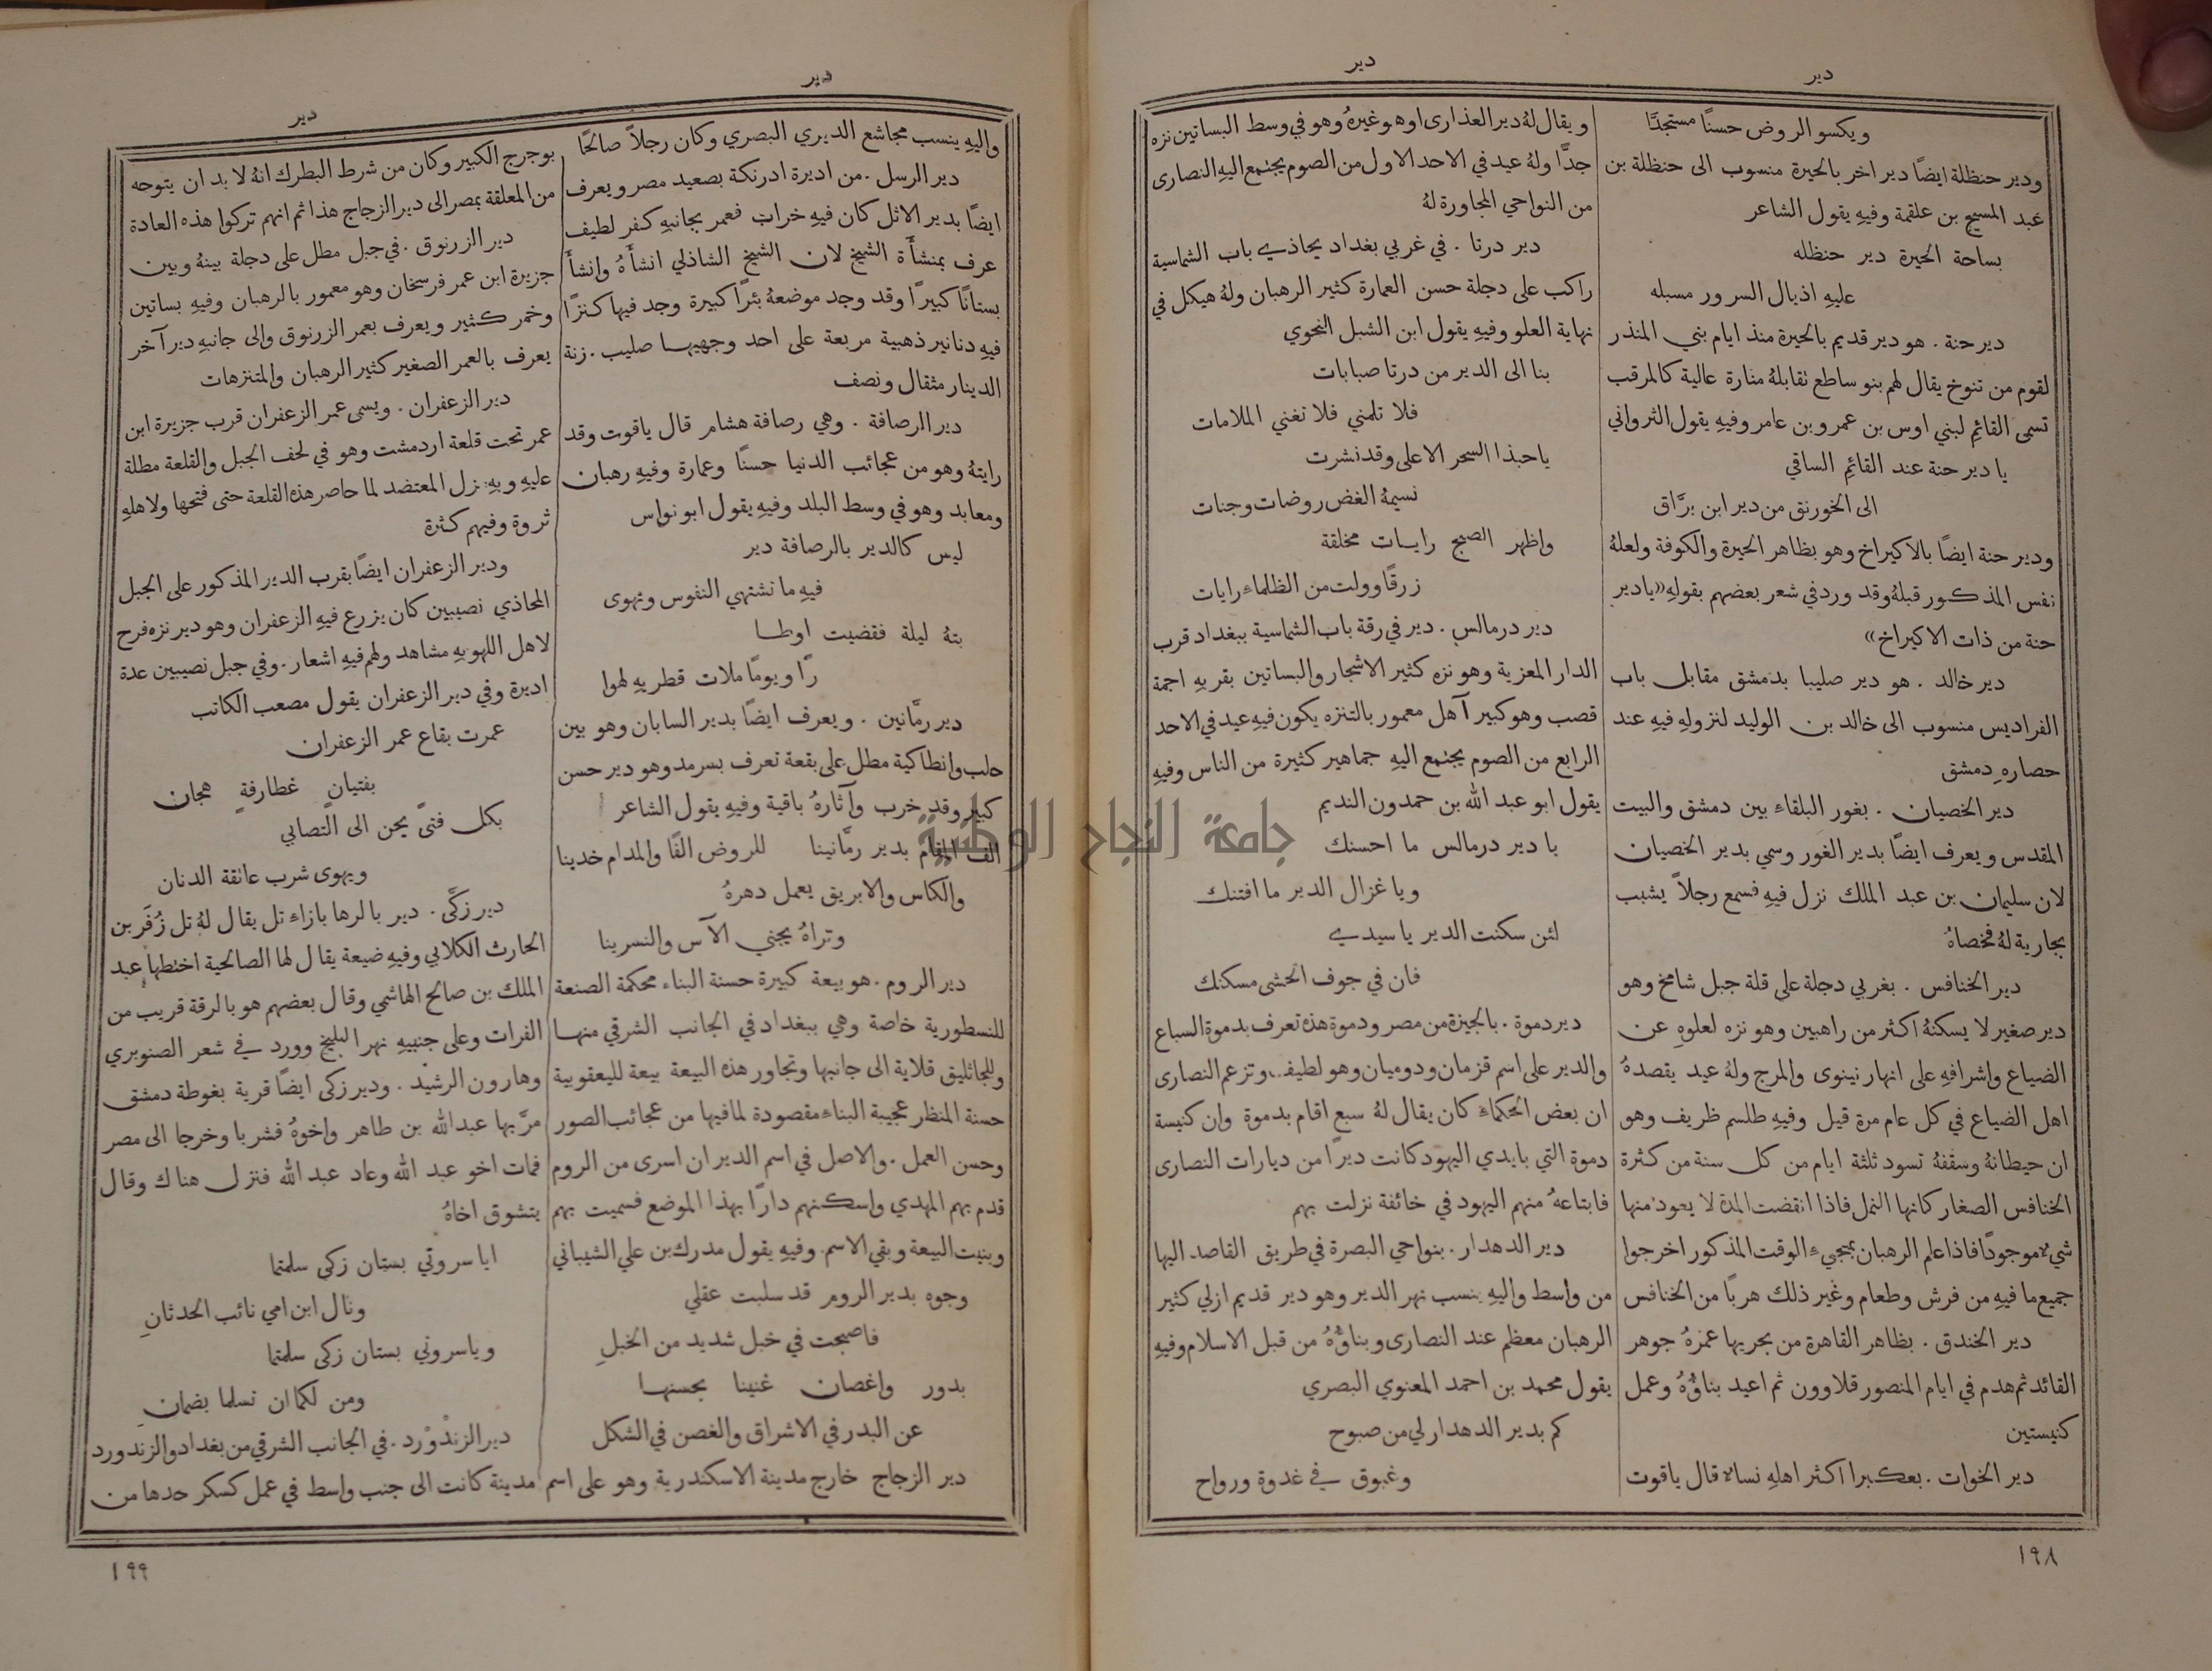 دير
دير
ويكسو الروض حسنًا مستجدًّا
ودير حنظلة ايضًا دير اخر بالحيرة منسوب الى حنظلة بن
عبد المسيح بن علقمة وفيهِ يقول الشاعر
بساحة الحيرة دير حنظله
عليهِ اذيال السرور مسبله
دير حنة . هو دير قديم بالحيرة منذ ايام بني المنذر
لقوم من تنوخ يقال لهم بنو ساطع تقابلهُ منارة عالية كالمرقب
تسمى القائمِ لبني اوس بن عمرو بن عامر وفيهِ يقول الثرواني
يا دير حنة عند القائمِ الساقي
الى الخورنق من دير ابن برَّاق
ودير حنة ايضًا بالاكيراخ وهو بظاهر الحيرة والكوفة ولعلهُ
نفس المذكور قبلهُ وقد ورد في شعر بعضهم بقولهِ «يا دير
حنة من ذات الاكيراخ»
دير خالد . هو دير صليبا بدمشق مقابل باب
الفراديس منسوب الى خالد بن الوليد لنزولهِ فيهِ عند
حصارهِ دمشق
دير الخصيان . بغور البلقاء بين دمشق والبيت
المقدس ويعرف ايضًا بدير الغور وسمي بدير الخصيان
لان سليمان بن عبد الملك نزل فيهِ فسمع رجلاً يشبب
بجارية لهُ فخصاهُ
دير الخنافس . بغربي دجلة على قلة جبل شامخ وهو
دير صغير لا يسكنهُ اكثر من راهبين وهو نزه لعلوهِ عن
الضياع واشرافهِ على انهار نينوى والمرج ولهُ عيد يقصدهُ
اهل الضياع في كل عام مرة قيل وفيهِ طلسم ظريف وهو
ان حيطانهُ وسقفهُ تسود ثلثة ايام من كل سنة من كثرة
الخنافس الصغار كانها النمل فاذا انقضت المدة لا يعود منها
شيء موجودًا فاذا علم الرهبان بمجيء الوقت المذكور اخرجوا
جميع ما فيهِ من فرش وطعام وغير ذلك هربًا من الخنافس
دير الخندق . بظاهر القاهرة من بحريها عمرهُ جوهر
القائد ثم هدم في ايام المنصور قلاوون ثم اعيد بناؤهُ وعمل
كنيستين
دير الخوات . بعكبرا اكثر اهلهِ نساء قال ياقوت
ويقال لهُ دير العذارى او هو غيرهُ وهو في وسط البساتين نزه
جدًّا ولهُ عيد في الاحد الاول من الصوم يجتمع اليهِ النصارى
من النواحي المجاورة لهُ
دير درتا . في غربي بغداد يحاذي باب الشماسية
راكب على دجلة حسن العمارة كثير الرهبان ولهُ هيكل في
نهاية العلو وفيهِ يقول ابن الشبل النحوي
بنا الى الدير من درتا صبابات
فلا تلمني فلا تغني الملامات
يا حبذا السحر الاعلى وقد نشرت
نسيمهُ الغض روضات وجنات
واظهر الصبح رايات مخلقة
زرقًا وولت من الظلماء رايات
دير درمالس . دير في رقة باب الشماسية ببغداد قرب
الدار المعزية وهو نزه كثير الاشجار والبساتين بقربهِ اجمة
قصب وهو كبير آهل معمور بالتنزه يكون فيهِ عيد في الاحد
الرابع من الصوم يجتمع اليهِ جماهير كثيرة من الناس وفيهِ
يقول ابو عبد الله بن حمدون النديم
يا دير درمالس ما احسنك
ويا غزال الدير ما افتنك
لئن سكنت الدير يا سيدي
فان في جوف الحشى مسكنك
دير دموة . بالجيزة من مصر ودموة هذه تعرف بدموة السباع
والدير على اسم قزمان ودوميان وهو لطيف . وتزعم النصارى
ان بعض الحكماء كان يقال لهُ سبع اقام بدموة وان كنيسة
دموة التي بايدي اليهود كانت ديرًا من ديارات النصارى
فابتاعهُ منهم اليهود في خائفة نزلت بهم
دير الدهدار . بنواحي البصرة في طريق القاصد اليها
من واسط واليهِ ينسب نهر الدير وهو دير قديم ازلي كثير
الرهبان معظم عند النصارى وبناؤُهُ من قبل الاسلام وفيهِ
يقول محمد بن احمد المعنوي البصري
كم بدير الدهدار لي من صبوح
وغبوق في غدوة ورواح
١٩٨
دير
دير
واليهِ ينسب مجاشع الديري البصري وكان رجلاً صالحًا
دير الرسل . من اديرة ادرنكة بصعيد مصر ويعرف
ايضًا بدير الاثل كان فيهِ خراب فعمر بجانبهِ كفر لطيف
عرف بمنشأَة الشيخ لان الشيخ الشاذلي انشأَهُ وانشأَ
بستانًا كبيرًا وقد وجد موضعهُ بئرًا كبيرة وجد فيها كنزًا
فيهِ دنانير ذهبية مربعة على احد وجهيها صليب . زنة
الدينار مثقال ونصف
دير الرصافة . وهي رصافة هشام قال ياقوت وقد
رايتهُ وهو من عجائب الدنيا حسنًا وعمارة وفيهِ رهبان
ومعابد وهو في وسط البلد وفيهِ يقول ابو نواس
ليس كالدير بالرصافة دير
فيهِ ما تشتهي النفوس وتهوى
بتهُ ليلة فقضيت اوطا
رًا ويومًا ملات قطريهِ لهوا
دير رمَّانين . ويعرف ايضًا بدير السابان وهو بين
حلب وانطاكية مطل على بقعة تعرف بسرمد وهو دير حسن
كبير وقد خرب وآثارهُ باقية وفيهِ يقول الشاعر
الف المقام بدير رمَّانينا للروض الفًا والمدام خدينا
والكاس والابريق يعمل دهرهُ
وتراهُ يجني الآس والنسرينا
دير الروم . هو بيعة كبيرة حسنة البناء محكمة الصنعة
للنسطورية خاصة وهي ببغداد في الجانب الشرقي منها
وللجاثليق قلاية الى جانبها وتجاور هذه البيعة بيعة لليعقوبية
حسنة المنظر عجيبة البناء مقصودة لما فيها من عجائب الصور
وحسن العمل . والاصل في اسم الدير ان اسرى من الروم
قدم بهم المهدي واسكنهم دارًا بهذا الموضع فسميت بهم
وبنيت البيعة وبقي الاسم . وفيهِ يقول مدرك بن علي الشيباني
وجوه بدير الروم قد سلبت عقلي
فاصبحت في خبل شديد من الخبلِ
بدور واغصان غنينا بحسنها
عن البدر في الاشراق والغصن في الشكل
دير الزجاج خارج مدينة الاسكندرية وهو على اسم
بوجرج الكبير وكان من شرط البطرك انهُ لا بد ان يتوجه
من المعلقة بمصر الى دير الزجاج هذا ثم انهم تركوا هذه العادة
دير الزرنوق . في جبل مطل على دجلة بينهُ وبين
جزيرة ابن عمر فرسخان وهو معمور بالرهبان وفيهِ بساتين
وخمر كثير ويعرف بعمر الزرنوق والى جانبهِ دير آخر
يعرف بالعمر الصغير كثير الرهبان والمتنزهات
دير الزعفران . ويسى عمر الزعفران قرب جزيرة ابن
عمر تحت قلعة اردمشت وهو في لحف الجبل والقلعة مطلة
عليهِ وبهِ نزل المعتضد لما حاصر هذه القلعة حتى فتحها ولاهلهِ
ثروة وفيهم كثرة
ودير الزعفران ايضًا بقرب الدير المذكور على الجبل
المحاذي نصيبين كان يزرع فيهِ الزعفران وهو دير نزه فرح
لاهل اللهو بهِ مشاهد ولهم فيهِ اشعار . وفي جبل نصيبين عدة
اديرة وفي دير الزعفران يقول مصعب الكاتب
عمرت بقاع عمر الزعفران
بفتيانٍ غطارفةٍ هجان
بكل فتىً يحن الى التصابي
ويهوى شرب عاتقة الدنان
دير زكَّى . دير بالرها بازاء تل يقال لهُ تل زُفَر بن
الحارث الكلابي وفيهِ ضيعة يقال لها الصالحية اختطها عبد
الملك بن صالح الهاشمي وقال بعضهم هو بالرقة قريب من
الفرات وعلى جنبيهِ نهر البليخ وورد في شعر الصنوبري
وهارون الرشيد . ودير زكى ايضًا قرية بغوطة دمشق
مرَّ بها عبدالله بن طاهر واخوهُ فشربا وخرجا الى مصر
فمات اخو عبد الله وعاد عبد الله فنزل هناك وقال
يتشوق اخاهُ
ايا سروتي بستان زكى سلمتما
ونال ابن امي نائب الحدثانِ
ويا سروتي بستان زكى سلمتما
ومن لكما ان تسلما بضمانِ
دير الزنْدوْرد . في الجانب الشرقي من بغداد والزندورد
مدينة كانت الى جنب واسط في عمل كسكر حدها من
١٩٩
جامعة النجاح الوطنية